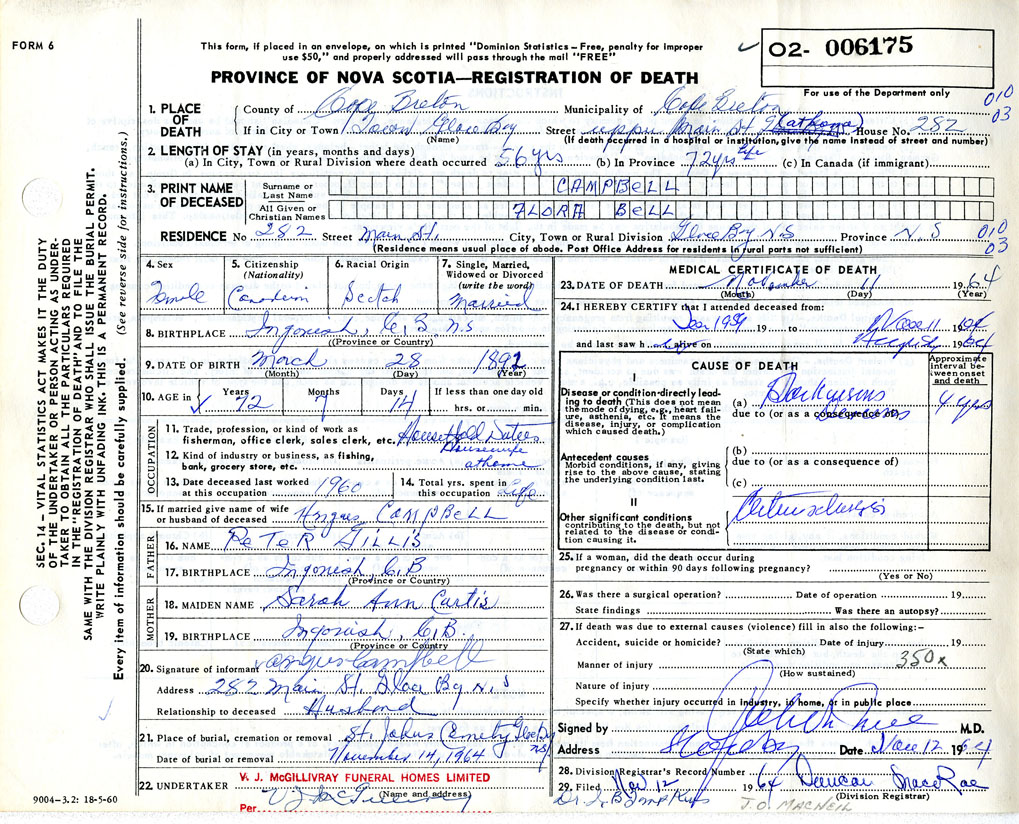 FORM 6
This form, if placed in an envelope, on which is printed "Dominion Statistics – Free, penalty for improper
use $50," and properly addressed will pass through the mail "FREE"
02- 006175
For use of the Department only
PROVINCE OF NOVA SCOTIA—REGISTRATION OF DEATH
010
03
1. PLACE OF DEATH
County of Cape Breton Municipality of Cape Breton
If in City or Town Town Glace Bay Street upper Main St (at home) House No. 282
(Name) (If death occurred in a hospital or institution, give the name instead of street and number)
2. LENGTH OF STAY (in years, months and days)
(a) In City, Town or Rural Division where death occurred 56 yrs (b) In Province 72 yrs life (c) In Canada (if immigrant)
3. PRINT NAME OF DECEASED
Surname or Last Name CAMPBELL
All Given or Christian Names FLORA BELL
RESIDENCE No 282 Street Main St. City, Town or Rural Division Glace Bay N S Province N. S
010
03
(Residence means usual place of abode. Post Office Address for residents in rural parts not sufficient)
4. Sex
Female
5. Citizenship (Nationality)
Canadian
6. Racial Origin
Scotch
7. Single, Married, Widowed or Divorced (write the word)
Married
8. BIRTHPLACE Ingonish, C, B N.S
(Province or Country)
9. DATE OF BIRTH March 28 1892
(Month) (Day) (Year)
10. AGE in Years 72 Months 7 Days 14 If less than one day old hrs. or min.
OCCUPATION
11. Trade, profession, or kind of work as fisherman, office clerk, sales clerk, etc. HouseHold Duties
12. Kind of industry or business, as fishing, bank, grocery store, etc. Housewife at home
13. Date deceased last worked at this occupation 1960
14. Total yrs. spent in this occupation Life
15. If married give name of wife or husband of deceased Angus CAMPBELL
FATHER
16. NAME PETER GILLIS
17. BIRTHPLACE Ingonish C.B
(Province or Country)
MOTHER
18. MAIDEN NAME Sarah Ann Curtis
19. BIRTHPLACE Ingonish, C, B.
(Province or Country
20. Signature of informant Angus Campbell
Address 282 Main St. Glace Bay N. S
Relationship to deceased Husband
21. Place of burial, cremation or removal St. Johns Cemetery Glace Bay N.S
Date of burial or removal November 14, 1964
22. UNDERTAKER V. J. McGILLIVRAY FUNERAL HOMES LIMITED
(Name and address)
Per V J McGillivray
9004–3.2: 18-5-60
MEDICAL CERTIFICATE OF DEATH
23. DATE OF DEATH November 11 1964
(Month) (Day) (Year)
24. I HEREBY CERTIFY that I attended deceased from:
Jan 1959 19 to Nov 11 1964
and last saw her alive on 1964
CAUSE OF DEATH
Approximate Interval between onset and death
I
Disease or condition directly leading to death (This does not mean the mode of dying, e.g., heart failure, asthenia, etc. It means the disease, injury, or complication which caused death.)
(a) Parkinsons 4 yrs
due to (or as a consequence of)
Antecedent causes
Morbid conditions, if any, giving rise to the above cause, stating the underlying condition last.
(b)
due to (or as a consequence of)
(c)
II
Other significant conditions contributing to the death, but not related to the disease or condition causing it.
Arteriosclerosis
25. If a woman, did the death occur during pregnancy or within 90 days following pregnancy?
(Yes or No)
26. Was there a surgical operation? Date of operation 19
State findings Was there an autopsy?
27. If death was due to external causes (violence) fill in also the following:–
Accident, suicide or homicide? Date of injury 19
(State which)
350x
Manner of injury
(How sustained)
Nature of injury
Specify whether injury occurred in industry, in home, or in public place
Signed by M.D.
Address Glace Bay Date Nov 12 1964
28. Division Registrar's Record Number
29. Filed Nov 12 1964 Duncan MacRae
(Division Registrar)
J.O. MACNEIL
SEC. 14 – VITAL STATISTICS ACT MAKES IT THE DUTY
OF THE UNDERTAKER OR PERSON ACTING AS UNDER-
TAKER TO OBTAIN ALL THE PARTICULARS REQUIRED
IN THE "REGISTRATION OF DEATH" AND TO FILE THE
SAME WITH THE DIVISION REGISTRAR WHO SHALL ISSUE THE BURIAL PERMIT.
WRITE PLAINLY WITH UNFADING INK. THIS IS A PERMANENT RECORD.
Every item of information should be carefully supplied. (See reverse side for instructions.)